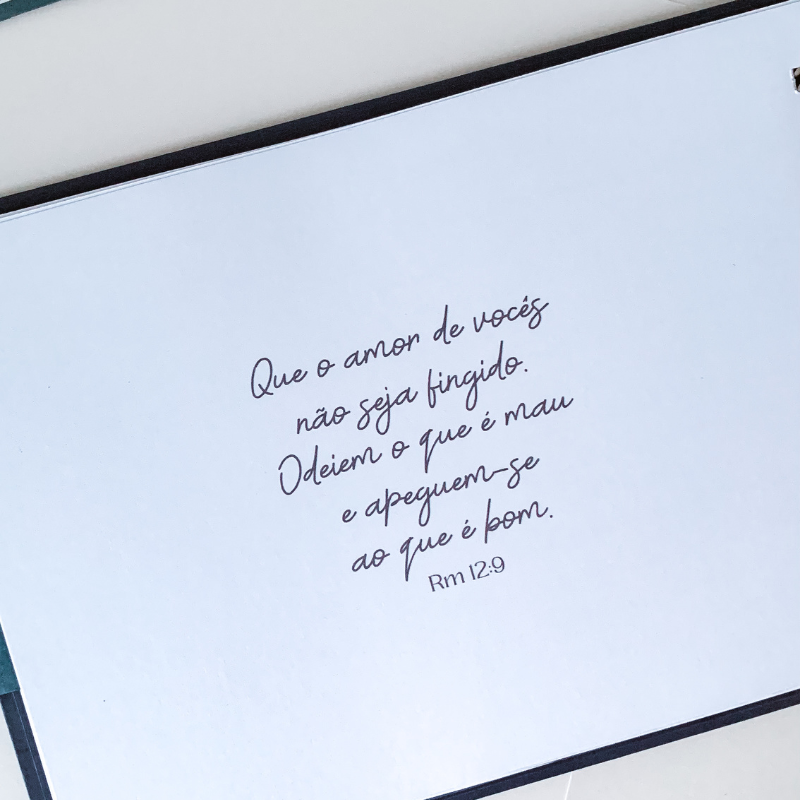 Que o amor de vocês
não seja fingido.
Odeiem o que é mau
e apeguem-se
ao que é bom.
Rm 12:9